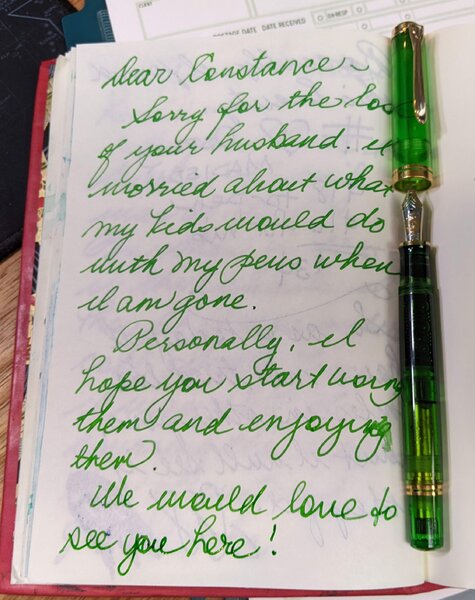 CLIENT
POSTAGE DATE DATE RECEIVED
Dear Constance ~
Sorry for the loss
of your husband. I
worried about what
my kids would do
with my pens when
I am gone.
Personally, I
hope you start using
them and enjoying
them.
We would love to
see you here!